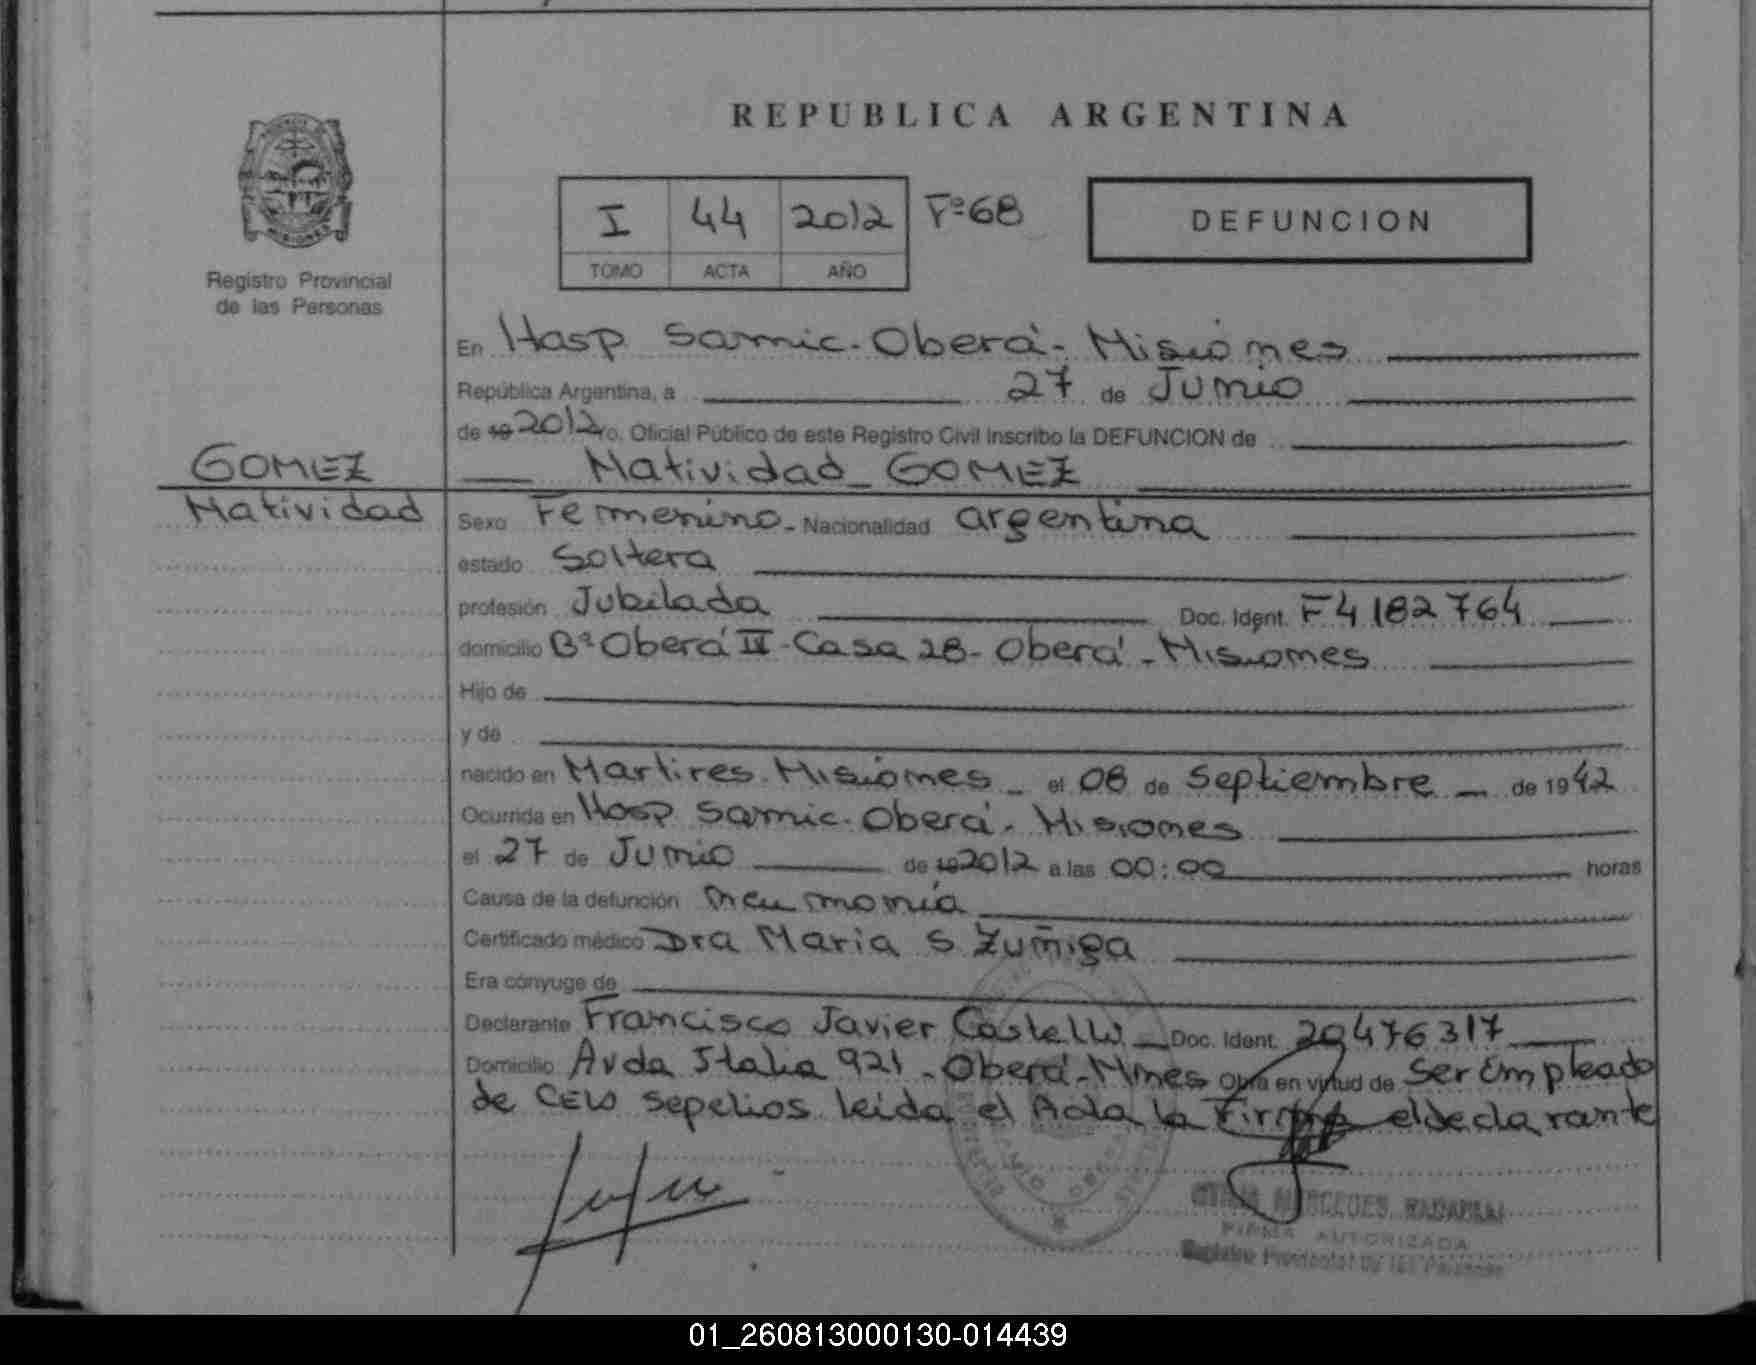 REPUBLICA ARGENTINA
MISIONES
Registro Provincial
de las Personas
I 44 2012 Fº68
TOMO ACTA AÑO
DEFUNCION
En Hosp Samic-Oberá-Misiones
República Argentina, a 27 de Junio
de 19 2012 Yo, Oficial Público de este Registro Civil inscribo la DEFUNCION de
GOMEZ
Natividad
Natividad_GOMEZ
Sexo Femenino- Nacionalidad argentina
estado Soltera
profesión Jubilada Doc. Ident. F4182764
domicilio Bº Oberá IV-Casa 28-Oberá-Misiones
Hijo de
y de
nacido en Martires-Misiones_ el 08 de Septiembre_ de 1942
Ocurrida en Hosp Samic-Oberá-Misiones
el 27 de Junio de 19 2012 a las 00:00 horas
Causa de la defunción neumonía
Certificado médico Dra Maria S Zuñiga
Era cónyuge de
Declarante Francisco Javier Doc. Ident. 20476317
Domicilio Avda Italia 921-Oberá-Mnes Obra en virtud de Ser Empleado
de sepelios leida el Acta la Firma el declarante
MERCEDES
FIRMA AUTORIZADA
Registro Provincial de las Personas
01_260813000130-014439